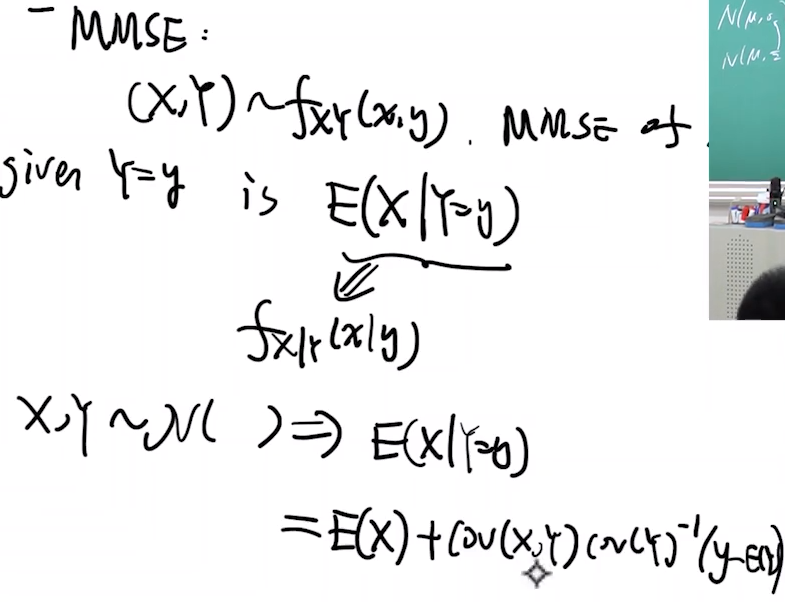 - MMSE:
(X,Y) ~ f_{XY}(x,y). MMSE of
given Y=y is E(X|Y=y)
f_{X|Y}(x|y)
X,Y ~ N( ) ⇒ E(X|Y=y)
= E(X) + Cov(X,Y) Cov(Y)^{-1} (y-E(Y))
N(μ,σ
N(μ,Σ